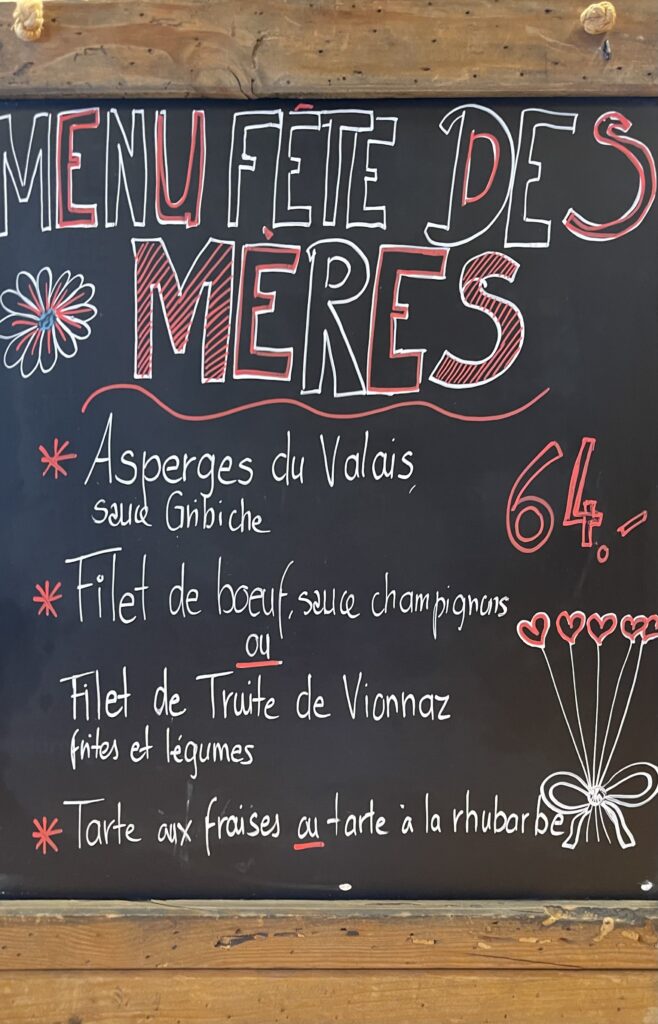 MENU FÊTE DES
MÈRES
* Asperges du Valais,
sauce Gribiche
64.-
* Filet de boeuf, sauce champignons
ou
Filet de Truite de Vionnaz
frites et légumes
* Tarte aux fraises ou tarte à la rhubarbe